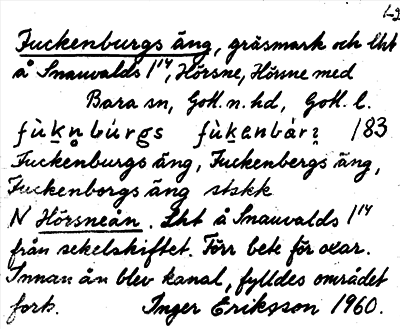 1-2
Fuckenburgs äng, gräsmark och lht
å Snauvalds 1¹⁴, Hörsne, Hörsne med
Bara sn, Gotl. n. hd, Gotl. l.
fùḵn̥búrgs fùḵenbárː 183
Fuckenburgs äng, Fuckenbergs äng,
Fuckenborgs äng stskk
N Hörsneån. Lht å Snauvalds 1¹⁴
från sekelskiftet. Förr bete för oxar.
Innan ån blev kanal, fylldes området
fort. Inger Eriksson 1960.